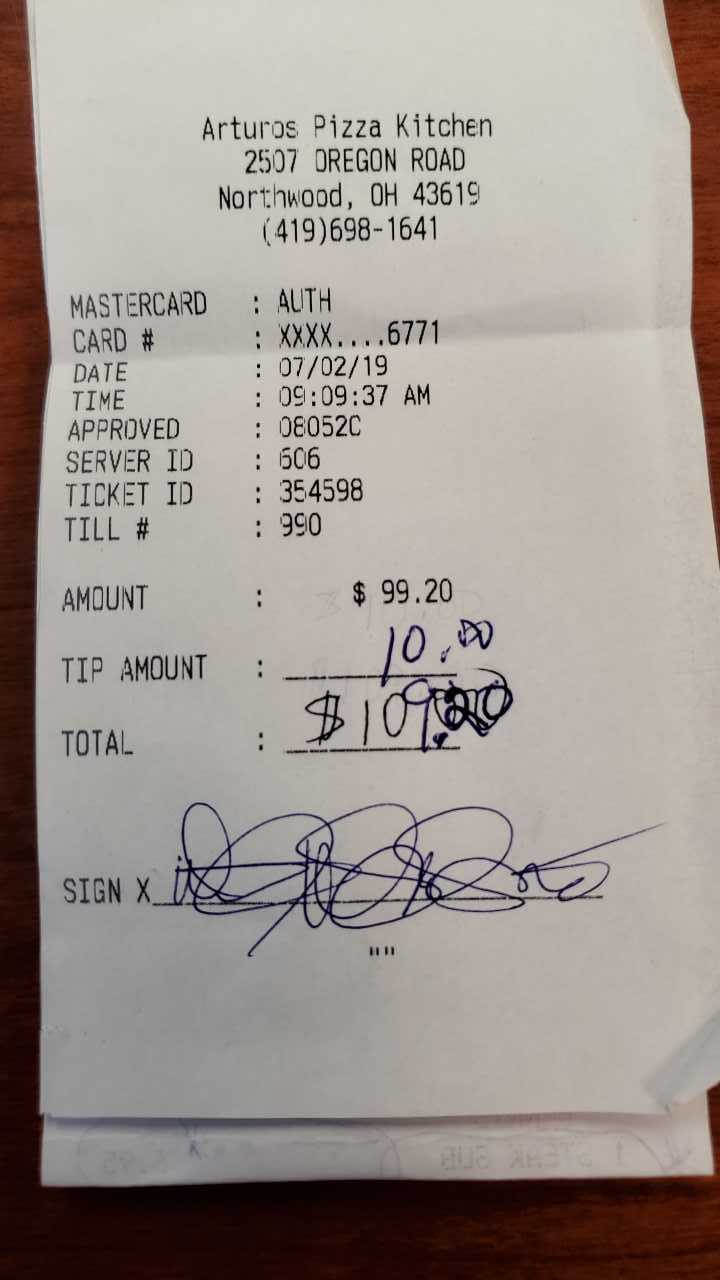 Arturos Pizza Kitchen
2507 OREGON ROAD
Northwood, OH 43619
(419)698-1641
MASTERCARD : AUTH
CARD # : XXXX....6771
DATE : 07/02/19
TIME : 09:09:37 AM
APPROVED : 08052C
SERVER ID : 606
TICKET ID : 354598
TILL # : 990
AMOUNT : $ 99.20
TIP AMOUNT : 10.00
TOTAL : $109.20
SIGN X
""
1 STEAK SUB